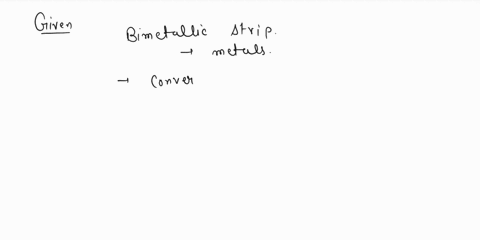 Given
Bimetallic strip.
→ metals.
→ Conver